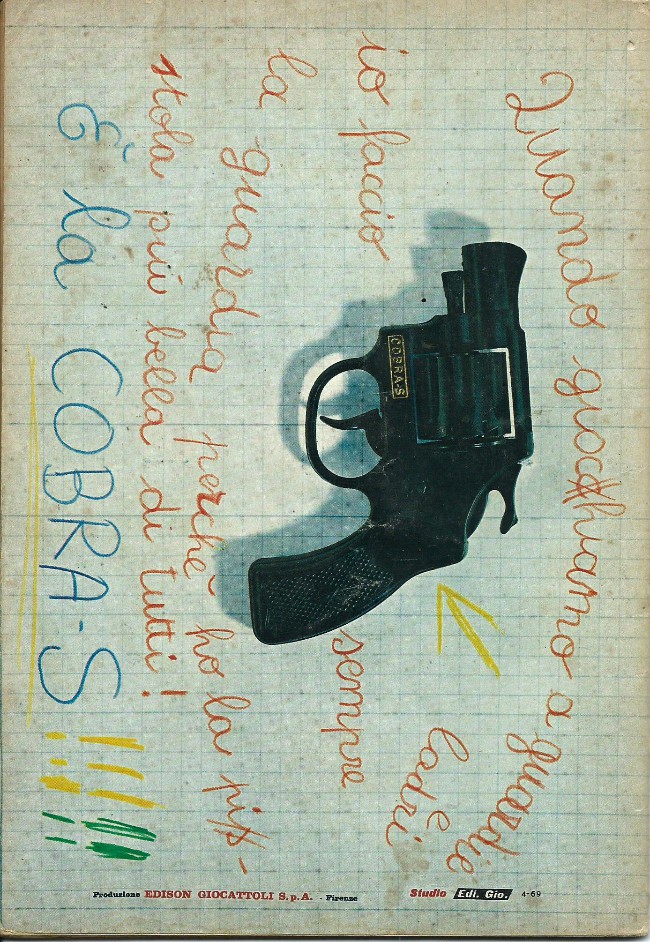 Quando giochiamo a guardie
e ladri
io faccio sempre
la guardia perchè ho la pi-
stola più bella di tutti!
È la COBRA-S!!!!!
COBRA-S
Produzione EDISON GIOCATTOLI S.p.A. - Firenze
Studio Edi. Gio. 4-69